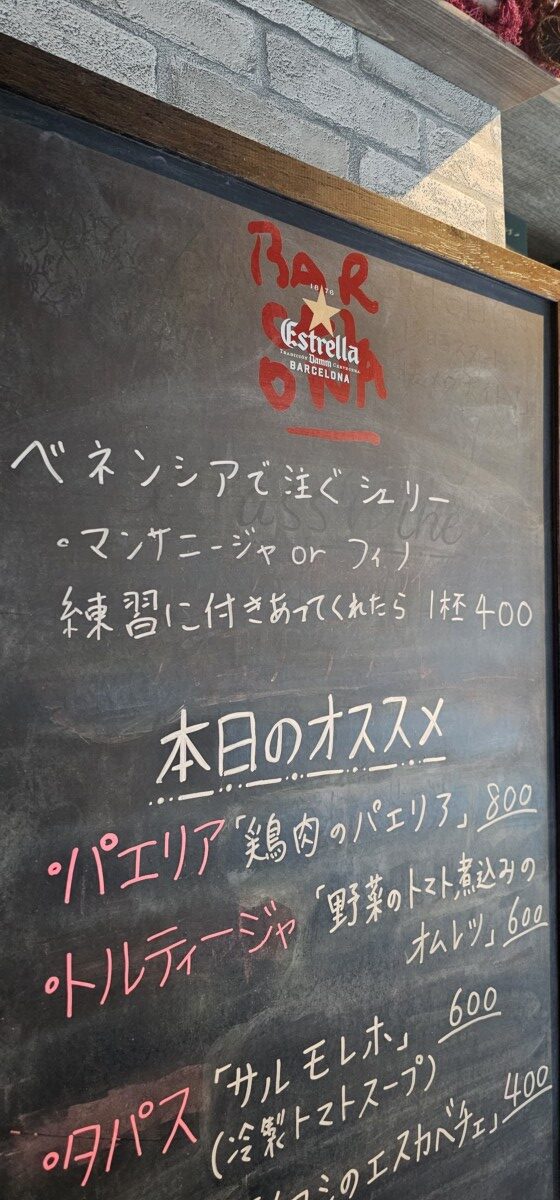 BAR
CELONA
1876
Estrella
TRADICIÓN Damm CERVECERA
BARCELONA
ベネンシアで注ぐシェリー
・マンサニージャ or フィノ
練習に付きあってくれたら 1杯 400
本日のオススメ
・パエリア「鶏肉のパエリア」800
・トルティージャ「野菜のトマト煮込みの
オムレツ」600
・タパス「サルモレホ」600
(冷製トマトスープ)
シのエスカベチェ」400